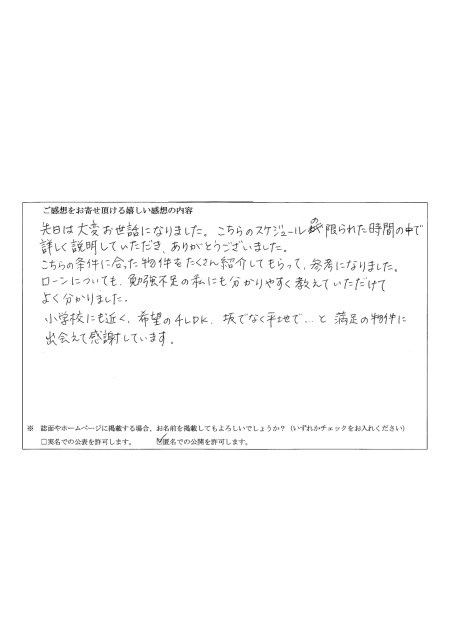 ご感想をお寄せ頂ける嬉しい感想の内容
先日は大変お世話になりました。こちらのスケジュールの限られた時間の中で
詳しく説明していただき、ありがとうございました。
こちらの条件に合った物件をたくさん紹介してもらって、参考になりました。
ローンについても、勉強不足の私にも分かりやすく教えていただけて
よく分かりました。
小学校にも近く、希望の4LDK、坂でなく平地で…と満足の物件に
出会えて感謝しています。
※ 誌面やホームページに掲載する場合、お名前を掲載してもよろしいでしょうか？（いずれかチェックをお入れください）
□実名での公表を許可します。 ☑匿名での公開を許可します。